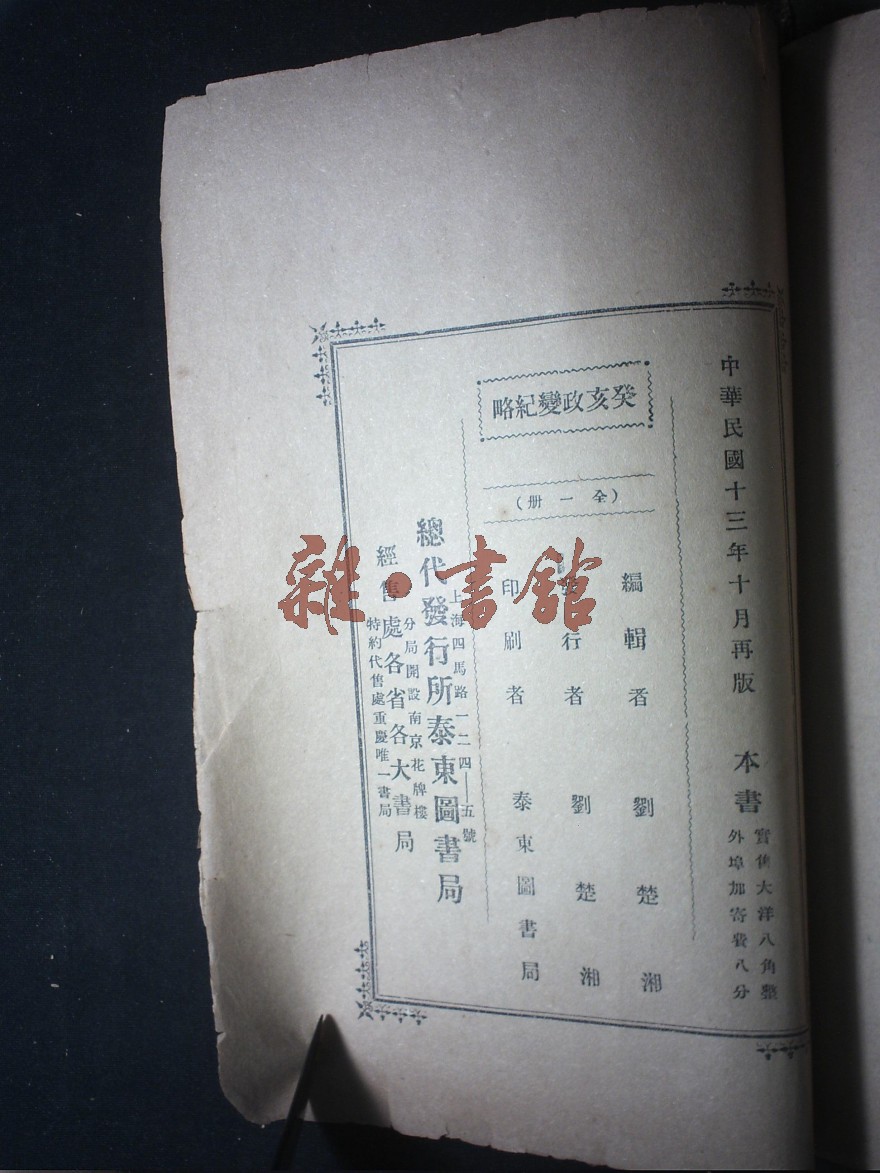 中華民國十三年十月再版
本書
實售大洋八角整
外埠加寄費八分
癸亥政變紀略
（全一册）
編輯者 劉楚湘
發行者 劉楚湘
印刷者 泰東圖書局
上海四馬路一二四—五號
總代發行所泰東圖書局
分局開設南京花牌樓
經售處各省各大書局
特約代售處重慶唯一書局
雜·書館